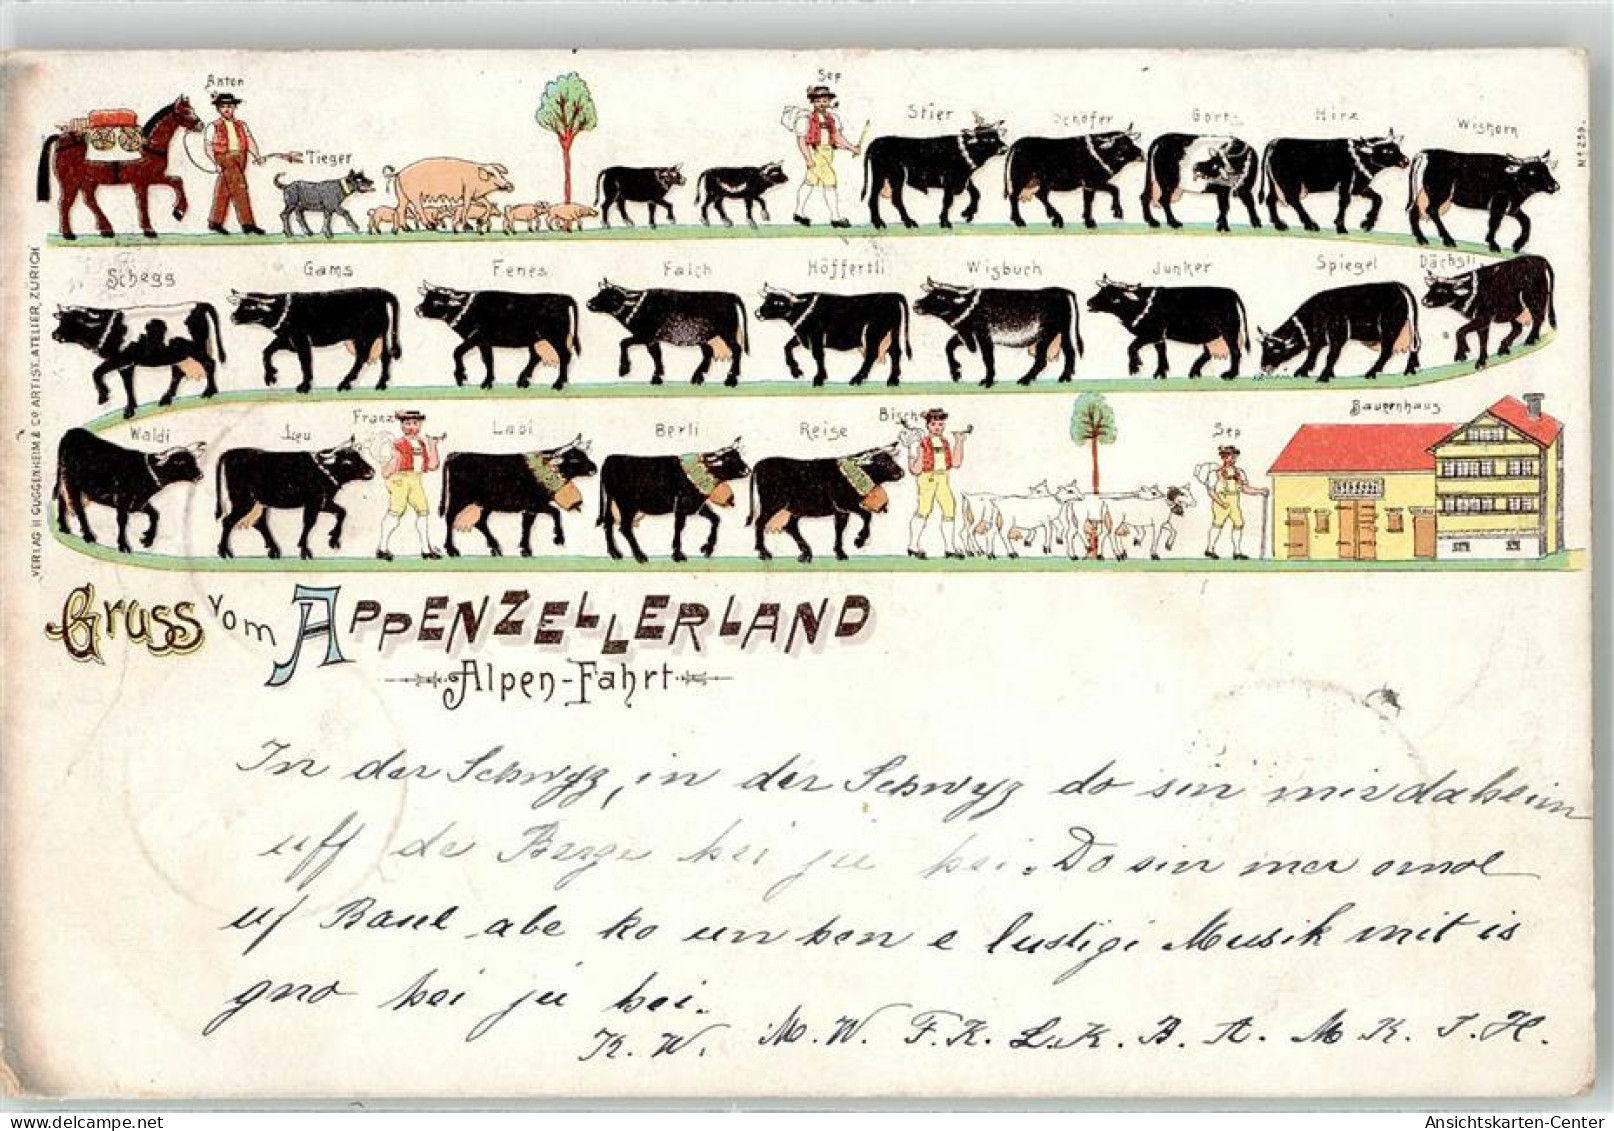 Anton
Sep
Tieger
Stier
Schofer
Hirz
Wishorn
No 259.
Schegg
Gams
Fenes
Falch
Höffertli
Wisbuch
Junker
Spiegel
Dächsli
Waldi
Leu
Franz
Laubi
Berli
Reise
Bisch
Sep
Bauernhaus
VERLAG H. GUGGENHEIM & Co ARTIST. ATELIER, ZÜRICH
Gruss vom APPENZELLERLAND
Alpen-Fahrt
In der Schwyz, in der Schwyz do sin mir daheim
uff de Berge hei ju hei. Do sin mer omol
uf Basel abe ko un hen e lustigi Musik mit is
gno hei ju hei.
K. W. M. W. F. K. L. K. B. A. M K. J. H.
Ansichtskarten-Center